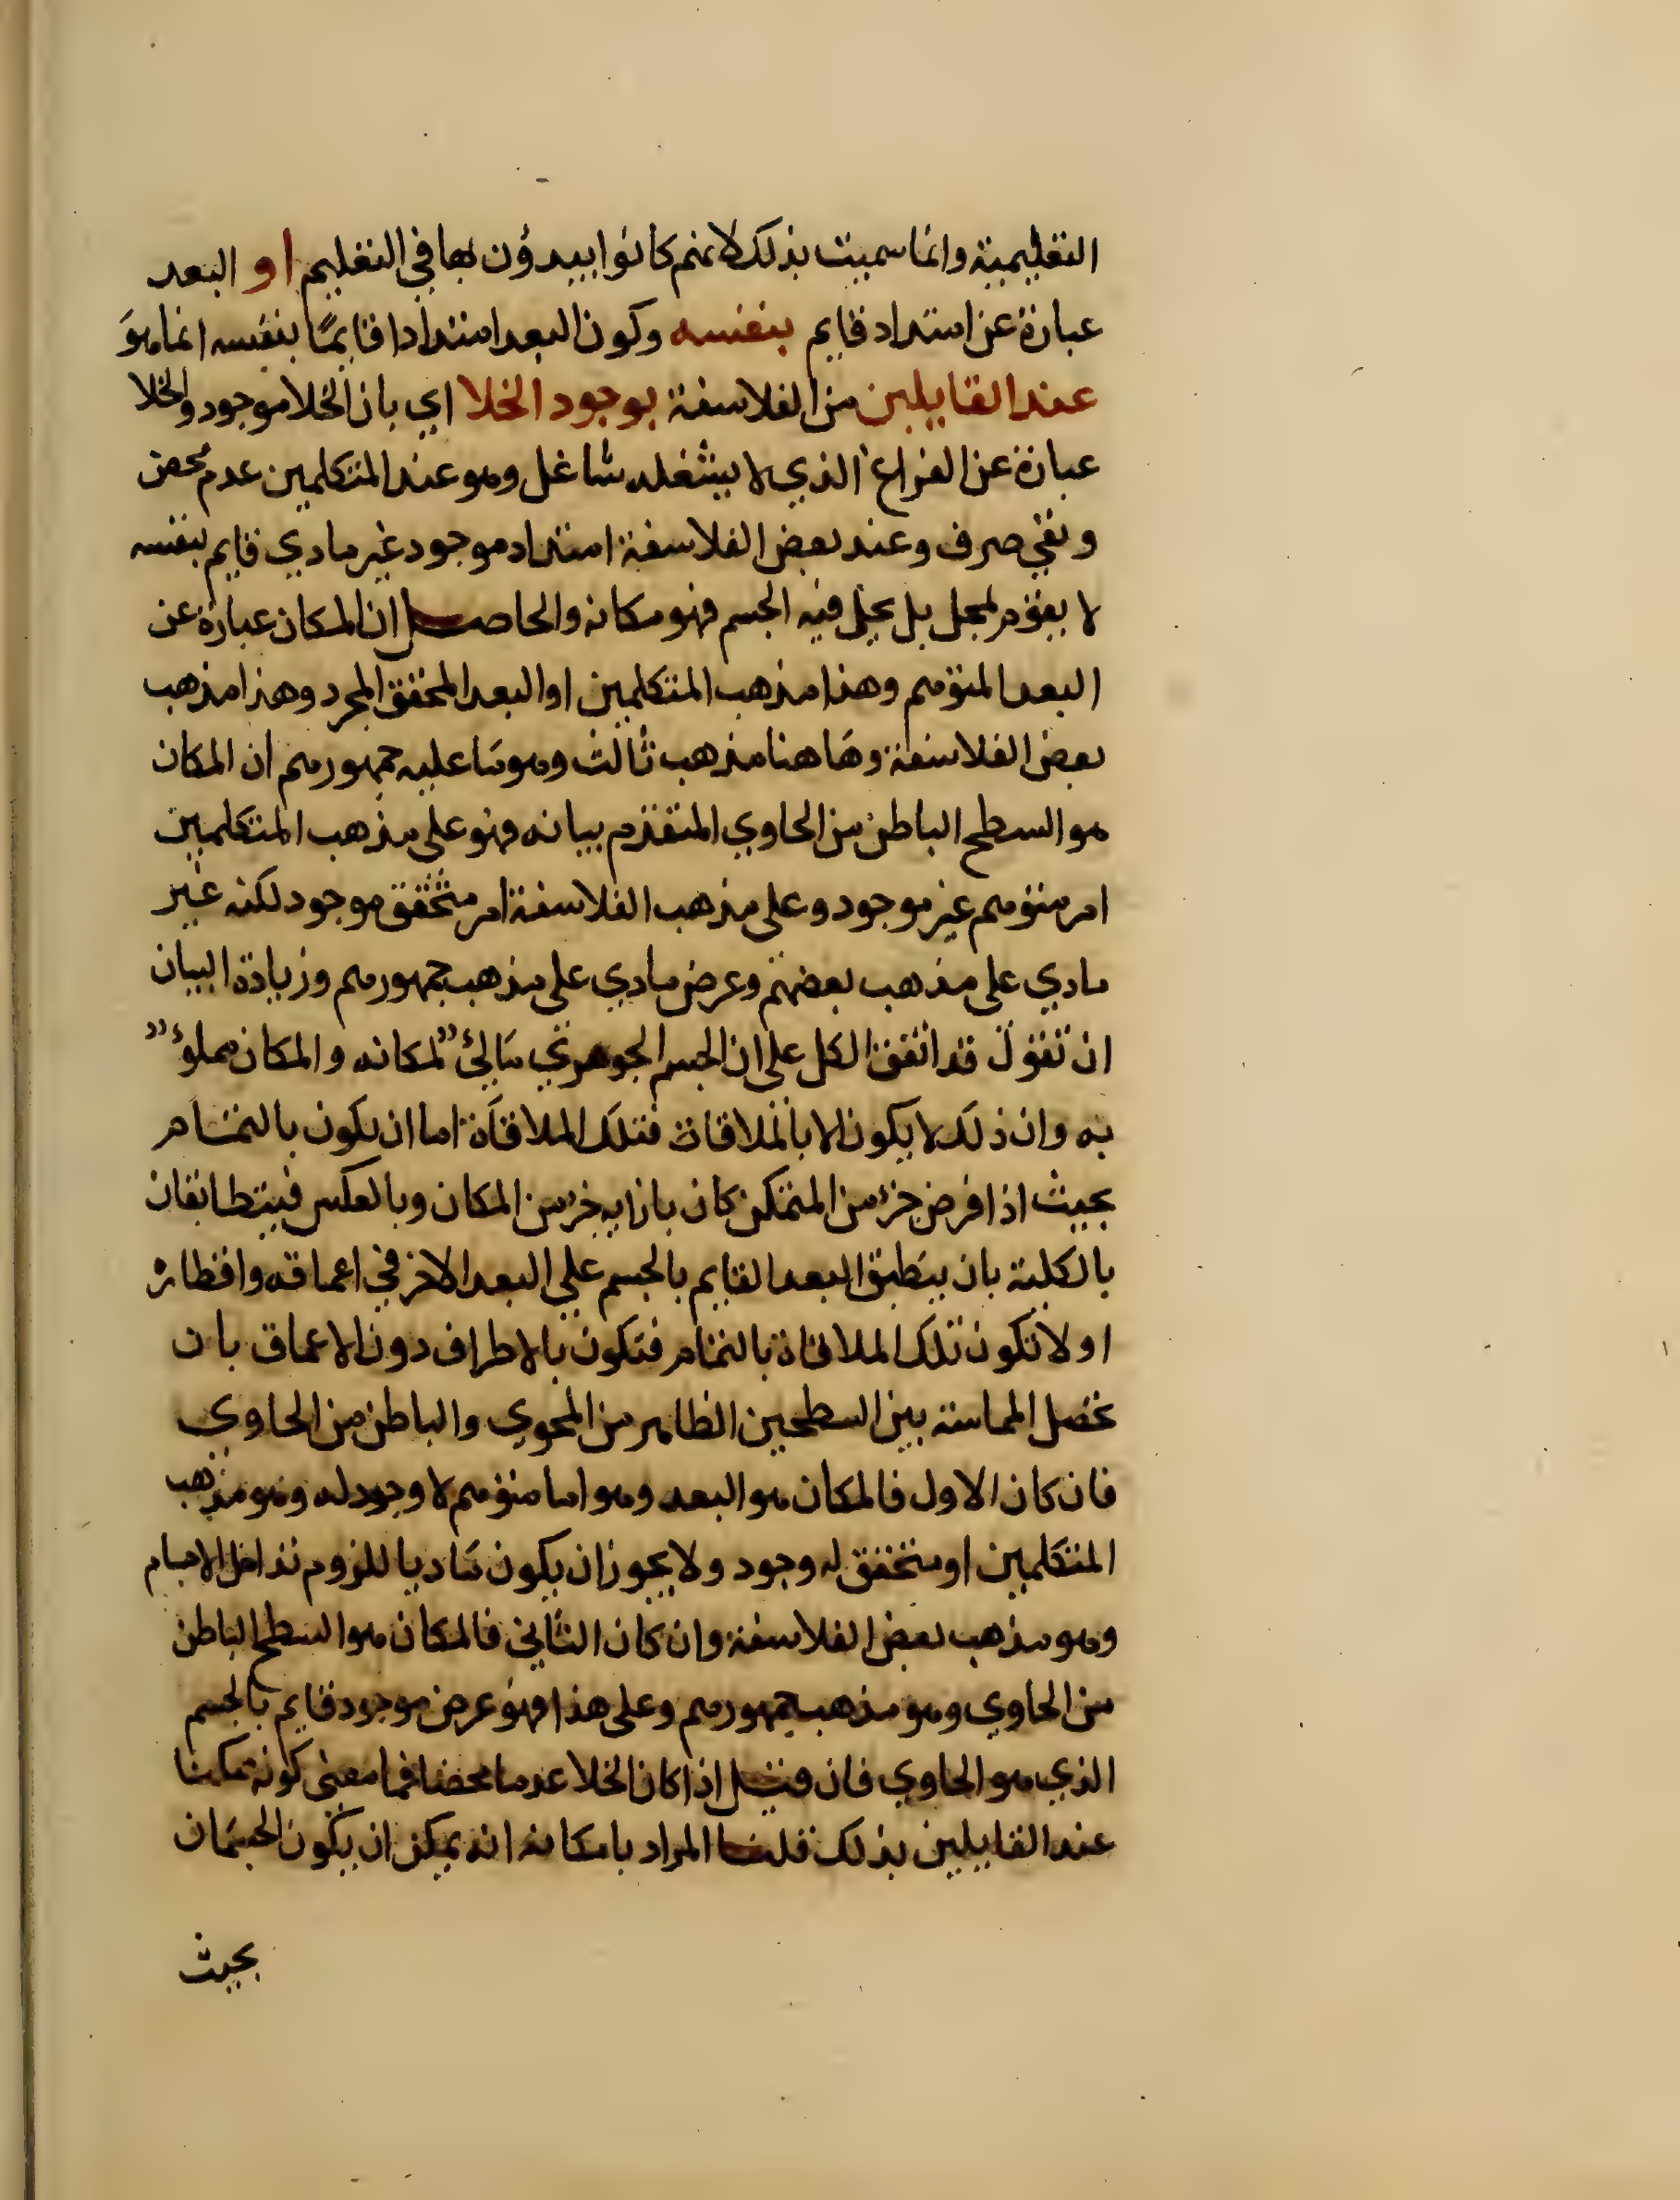 التعليمية وانما سميت بذلك لانهم كانوا يبدؤن بها في التعليم او البعد
عبارة عن امتداد قايم بنفسه وكون البعد امتدادا قايمًا بنفسه انما هوَ
عند القايلين من الفلاسفة بوجود الخلا اي بان الخلا موجود والخلا
عبارة عن الفراغ الذي لا يشغله شاغل وهو عند المتكلمين عدم محض
ونفي صرف وعند بعض الفلاسفة امتداد موجود غير مادي قايم بنفسه
لا يقوم بمحل بل يحل فيه الجسم فهو مكانه والحاصل ان المكان عبارة عن
البعد المتوهم وهذا مذهب المتكلمين او البعد المحقق المجرد وهذا مذهب
بعض الفلاسفة وهاهنا مذهب ثالث وهو ما عليه جمهورهم ان المكان
هو السطح الباطن من الحاوي المتقدم بيانه فهو على مذهب المتكلمين
امر متوهم غير موجود وعلى مذهب الفلاسفة امر متحقق موجود لكنه غير
مادي على مذهب بعضهم وعرض مادي على مذهب جمهورهم وزيادة البيان
ان تقول قد اتفق الكل على ان الجسم الجوهري مالئ لمكانه والمكان مملوء
به وان ذلك لا يكون الا بالملاقات فتلك الملاقاة اما ان يكون بالتمام
بحيث اذا فرض جزء من المتمكن كان بازايه جزء من المكان وبالعكس فيتطابقان
بالكلية بان ينطبق البعد القايم بالجسم علي البعد الاخر في اعماقه واقطاره
او لا تكون تلك الملاقاة بالتمام فتكون بالاطراف دون الاعماق بان
تحصل المماسة بين السطحين الظاهر من المحوي والباطن من الحاوي
فان كان الاول فالمكان هو البعد وهو اما متوهم لا وجود له وهو مذهب
المتكلمين او متحقق له وجود ولا يجوز ان يكون ماديا للزوم تداخل الاجسام
وهو مذهب بعض الفلاسفة وان كان الثاني فالمكان هو السطح الباطن
من الحاوي وهو مذهب جمهورهم وعلى هذا فهو عرض موجود قايم بالجسم
الذي هو الحاوي فان قيل اذا كان الخلا عدما محضا فما معنى كونه ممكنا
عند القايلين بذلك قلنا المراد بامكانه انه يمكن ان يكون الجسمان
بحيث